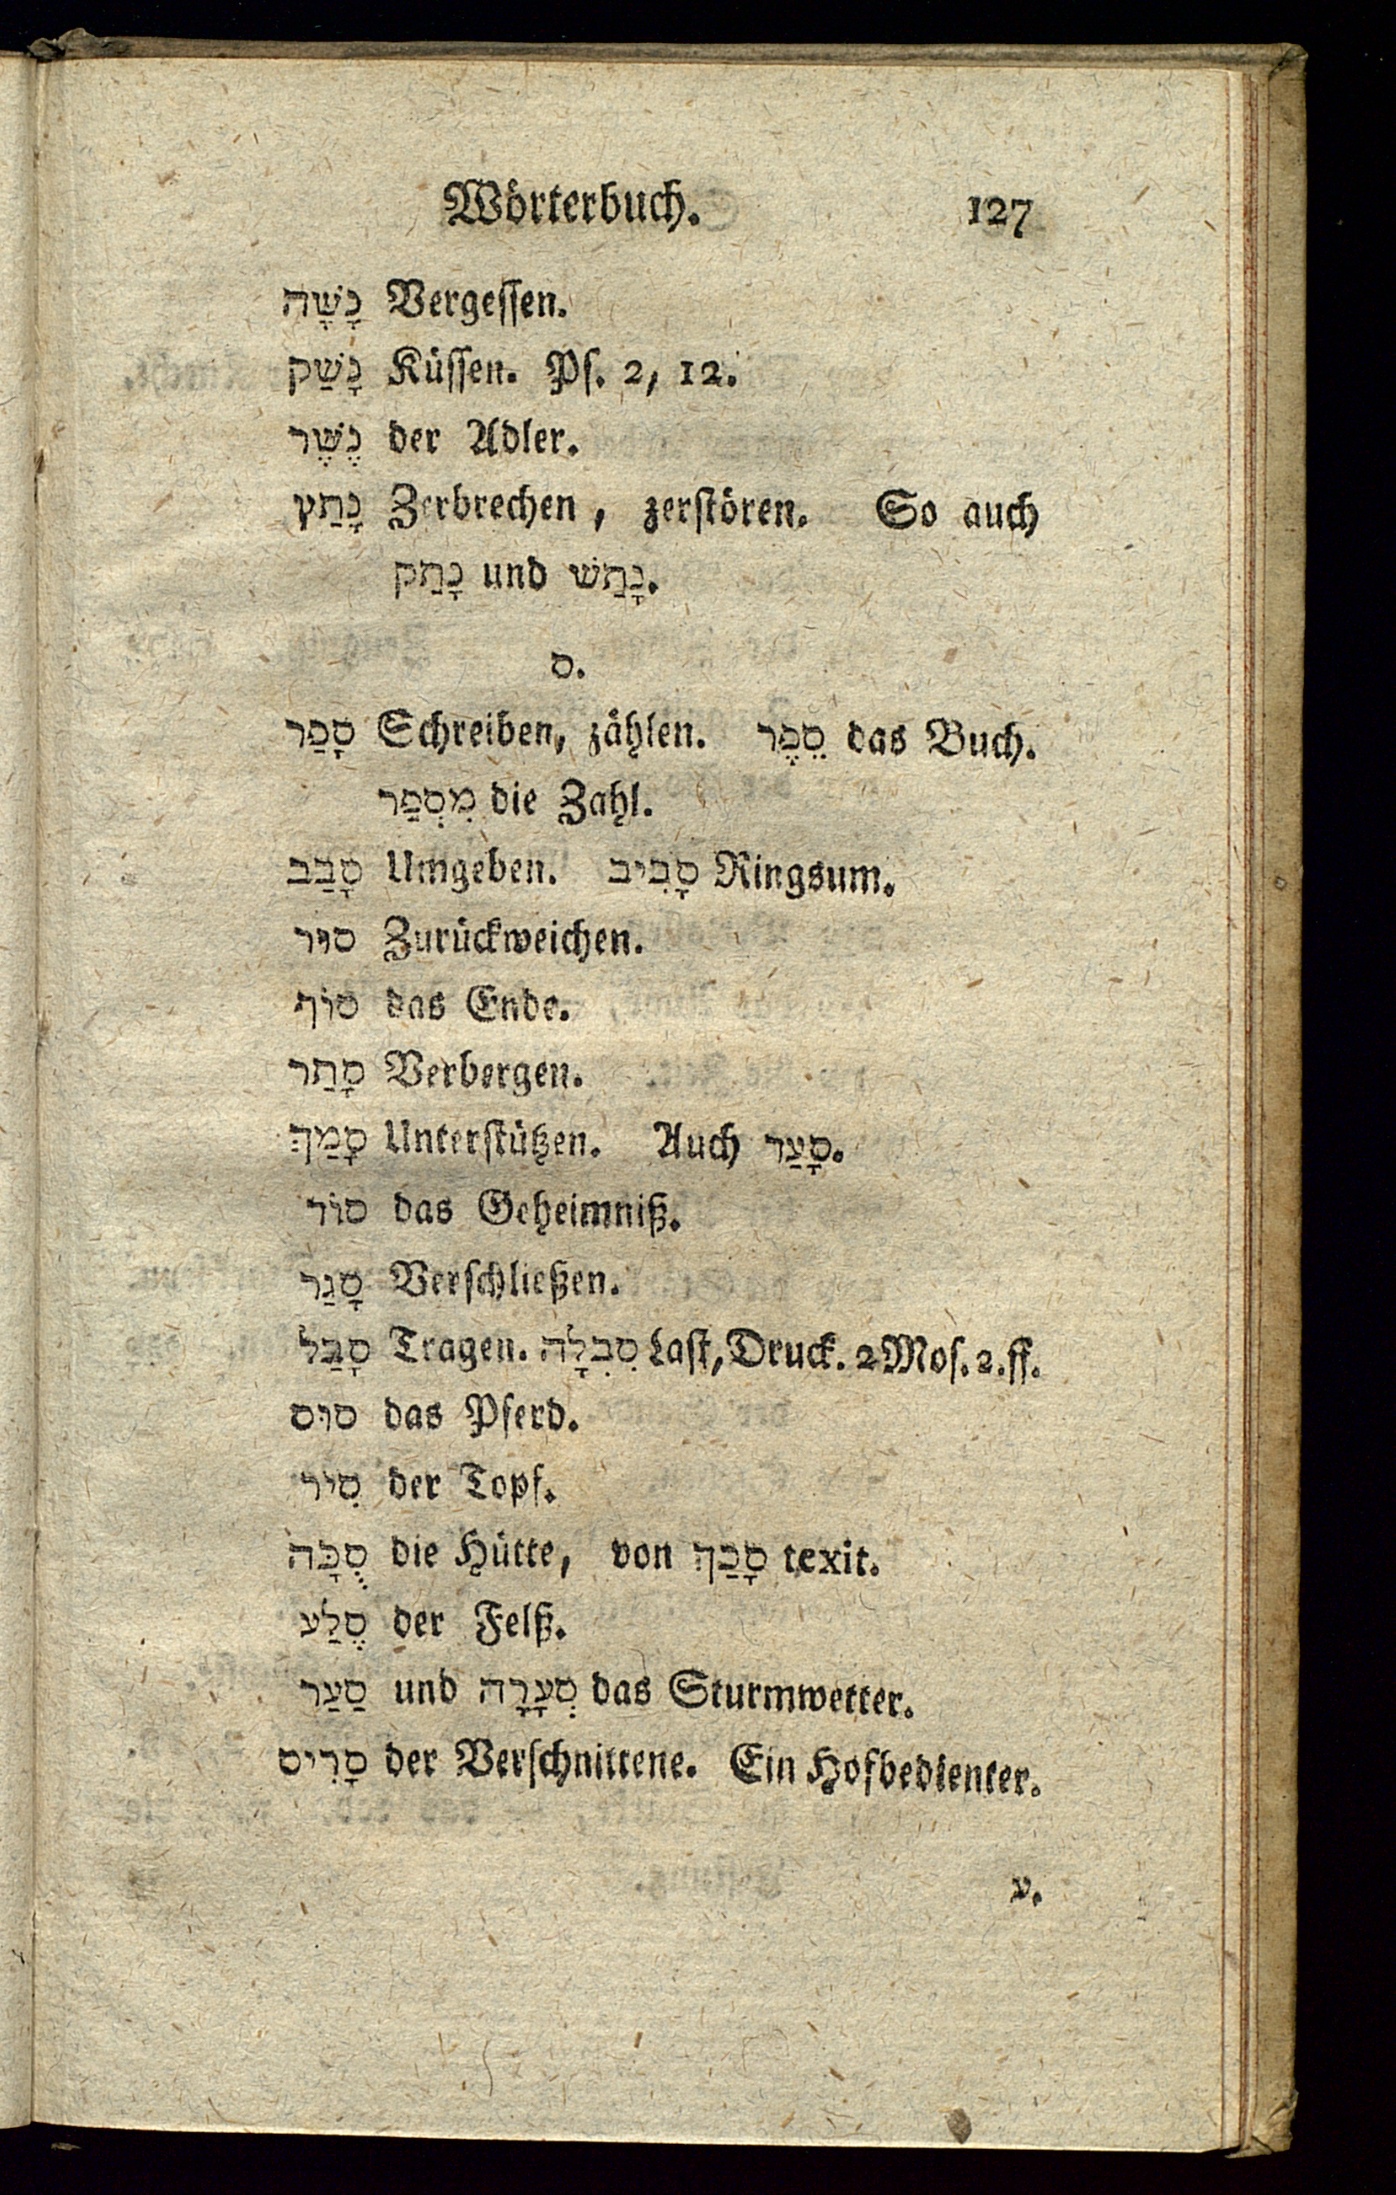 Wörterbuch. 127
נָשָׁה Vergeſſen.
נָשַׁק Küſſen. Pſ. 2, 12.
נֶשֶׁר der Adler.
נָתַץ Zerbrechen, zerſtören. So auch
נָתַק und נָתַשׁ.
ס.
סָפַר Schreiben, zählen. סֵפֶר das Buch.
מִסְפַּר die Zahl.
סָבַב Umgeben. סָבִיב Ringsum.
סוּר Zurückweichen.
סוֹף das Ende.
סָתַר Verbergen.
סָמַךְ Unterſtützen. Auch סָעַר.
סוֹד das Geheimniß.
סָגַר Verſchließen.
סָבַל Tragen. סִבְלָה Laſt, Druck. 2 Moſ. 2. ff.
סוּס das Pferd.
סִיר der Topf.
סֻכָּה die Hütte, von סָכַךְ texit.
סֶלַע der Felß.
סַעַר und סְעָרָה das Sturmwetter.
סָרִיס der Verſchnittene. Ein Hofbedienter.
ע.